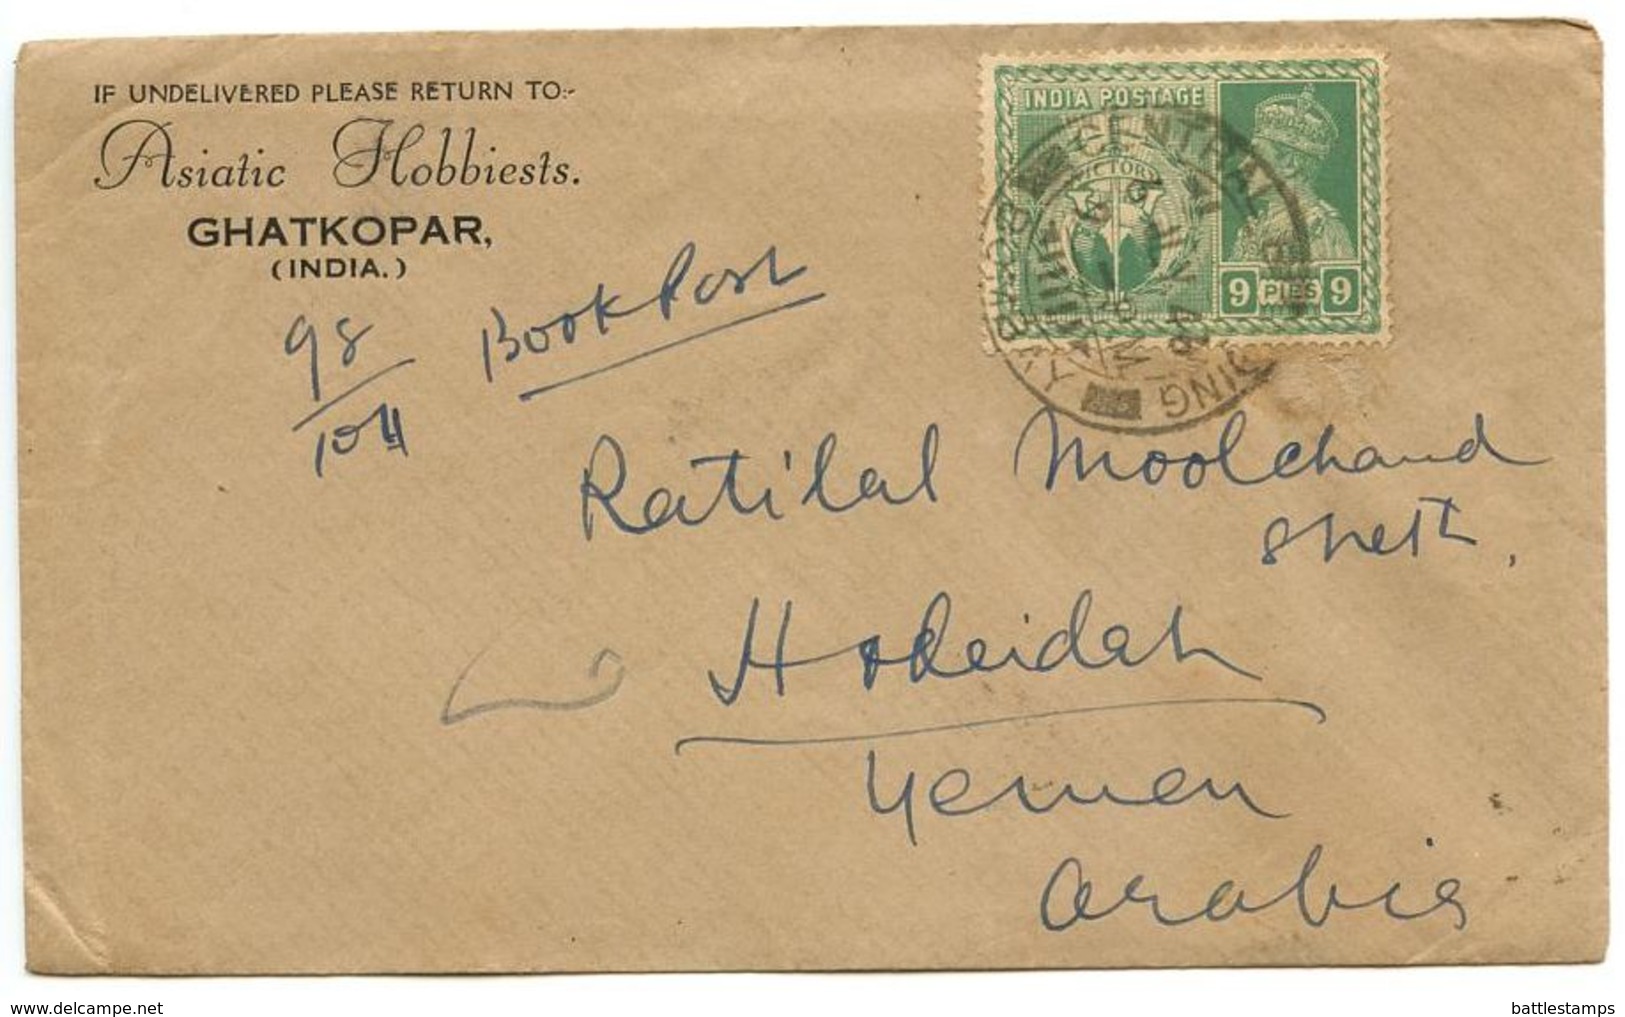 IF UNDELIVERED PLEASE RETURN TO:-
Asiatic Hobbiests.
GHATKOPAR,
(INDIA.)
98
104
Book Post
INDIA POSTAGE
VICTORY
9 PIES 9
BOMBAY
CENTRAL BUILDING
JUN 46
Ratilal Moolchand
Sheth,
Hodeidah
Yemen
Arabia
www.delcampe.net
battlestamps